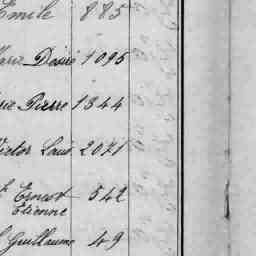 Emile 885
Marie Désiré 1095
Pierre 1344
Victor Louis 2071
Ernest 542
Etienne
Guillaume 49